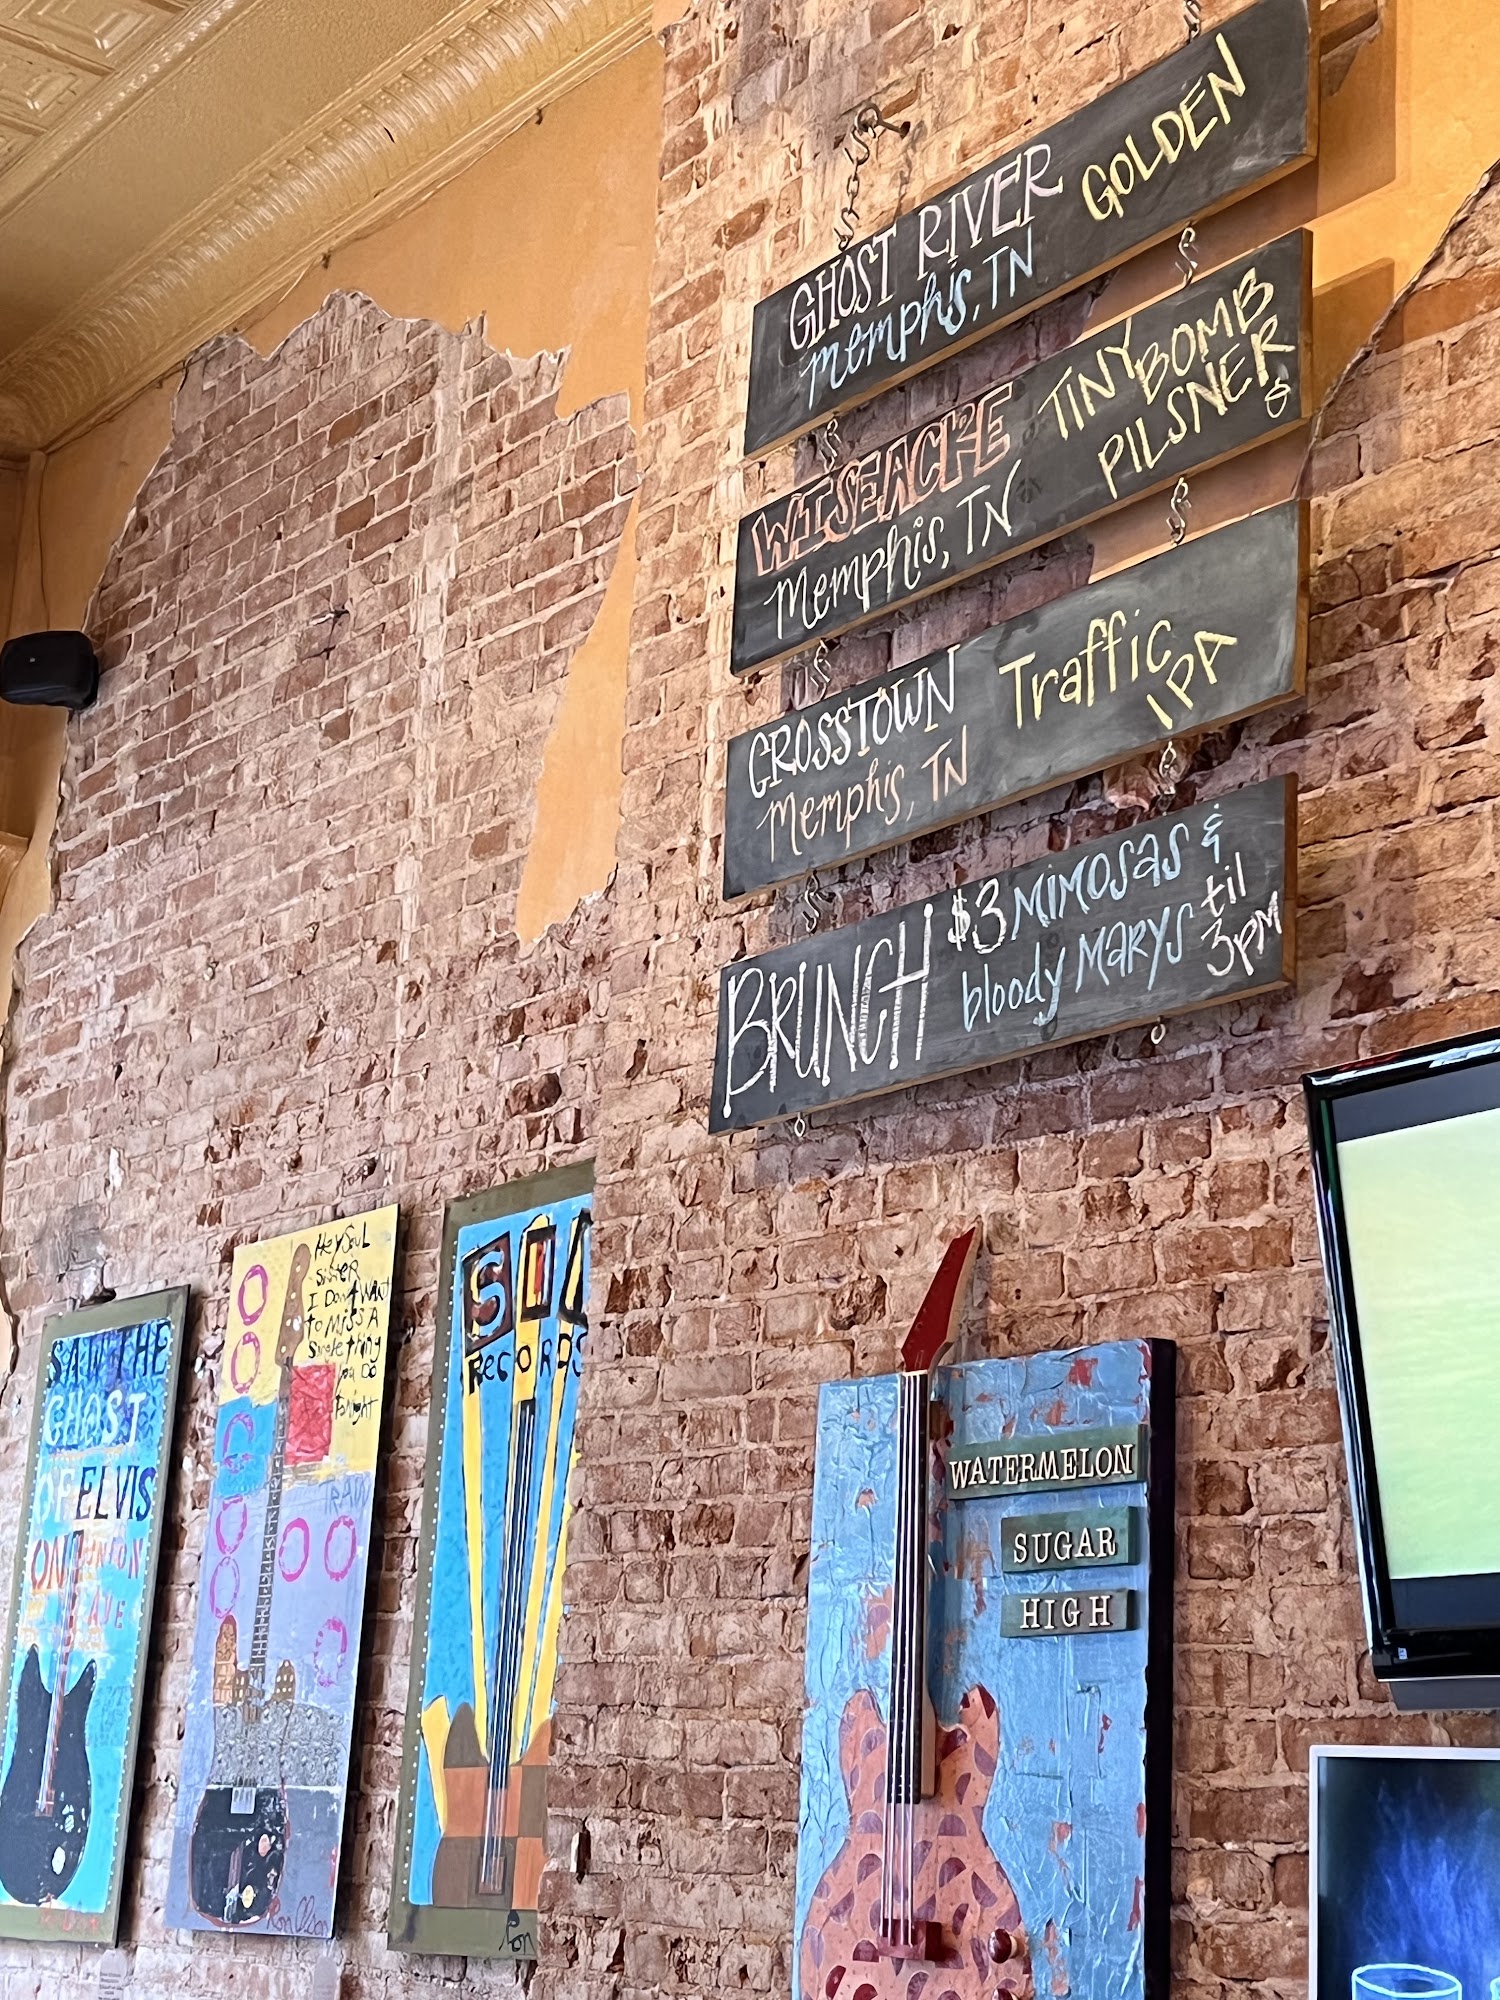 GHOST RIVER GOLDEN
Memphis, TN
WISEACRE TINY BOMB
Memphis, TN PILSNER
CROSSTOWN Traffic
Memphis, TN IPA
BRUNCH $3 MIMOSAS &
bloody MARYS til
3pm
SAW THE
GHOST
OF ELVIS
ON UNION
AVE
Hey SouL
SisteR
I Don't WANT
to Miss A
Single thing
You Do
Tonight
TRAIN
Records
Ron
WATERMELON
SUGAR
HIGH